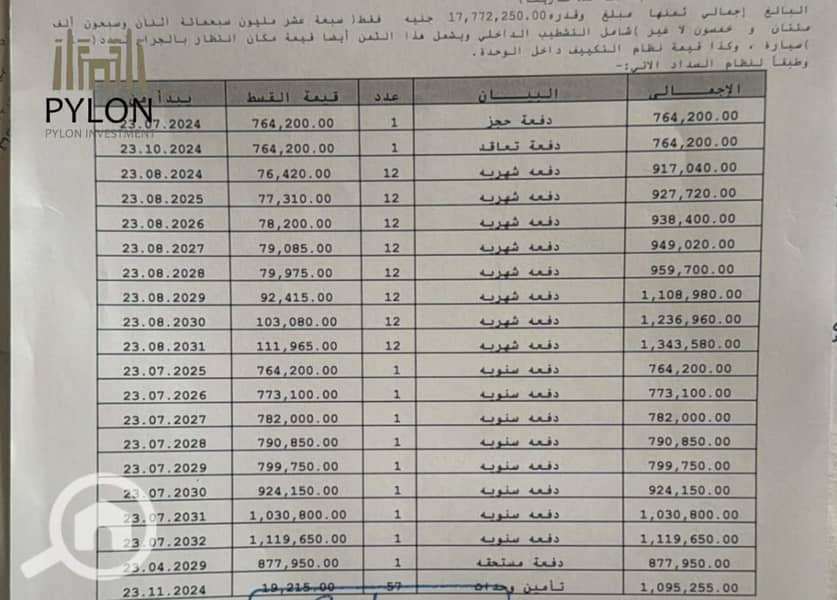 البالغ إجمالي ثمنها مبلغ وقدره17,772,250.00 جنيه فقط( سبعة عشر مليون سبعمائة اثنان وسبعون ألف
مئتان و خمسون لا غير )شامل التشطيب الداخلي ويشمل هذا الثمن أيضا قيمة مكان انتظار بالجراج لعدد(
)سيارة ، وكذا قيمة نظام التكييف داخل الوحدة.
وطبقاً لنظام السداد الاتي:-
PYLON
PYLON INVESTMENT
الإجمالى البيــــان عدد قيمة القسط يبدأ
764,200.00 دفعة حجز 1 764,200.00 23.07.2024
764,200.00 دفعة تعاقد 1 764,200.00 23.10.2024
917,040.00 دفعه شهريه 12 76,420.00 23.08.2024
927,720.00 دفعه شهريه 12 77,310.00 23.08.2025
938,400.00 دفعه شهريه 12 78,200.00 23.08.2026
949,020.00 دفعه شهريه 12 79,085.00 23.08.2027
959,700.00 دفعه شهريه 12 79,975.00 23.08.2028
1,108,980.00 دفعه شهريه 12 92,415.00 23.08.2029
1,236,960.00 دفعه شهريه 12 103,080.00 23.08.2030
1,343,580.00 دفعه شهريه 12 111,965.00 23.08.2031
764,200.00 دفعه سنويه 1 764,200.00 23.07.2025
773,100.00 دفعه سنويه 1 773,100.00 23.07.2026
782,000.00 دفعه سنويه 1 782,000.00 23.07.2027
790,850.00 دفعه سنويه 1 790,850.00 23.07.2028
799,750.00 دفعه سنويه 1 799,750.00 23.07.2029
924,150.00 دفعه سنويه 1 924,150.00 23.07.2030
1,030,800.00 دفعه سنويه 1 1,030,800.00 23.07.2031
1,119,650.00 دفعه سنويه 1 1,119,650.00 23.07.2032
877,950.00 دفعة مستحقه 1 877,950.00 23.04.2029
1,095,255.00 تأمين وحدات 57 19,215.00 23.11.2024